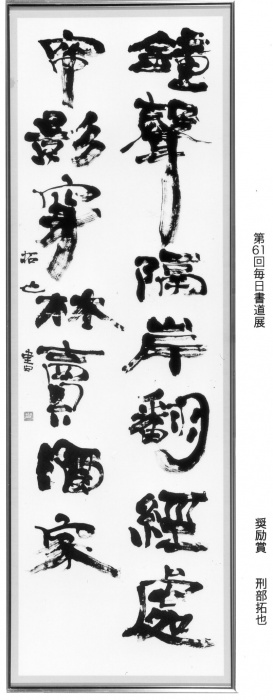 鐘聲隔岸翻經處
帘影穿林賣酒家
拓也書
第61回毎日書道展
奨励賞　刑部拓也